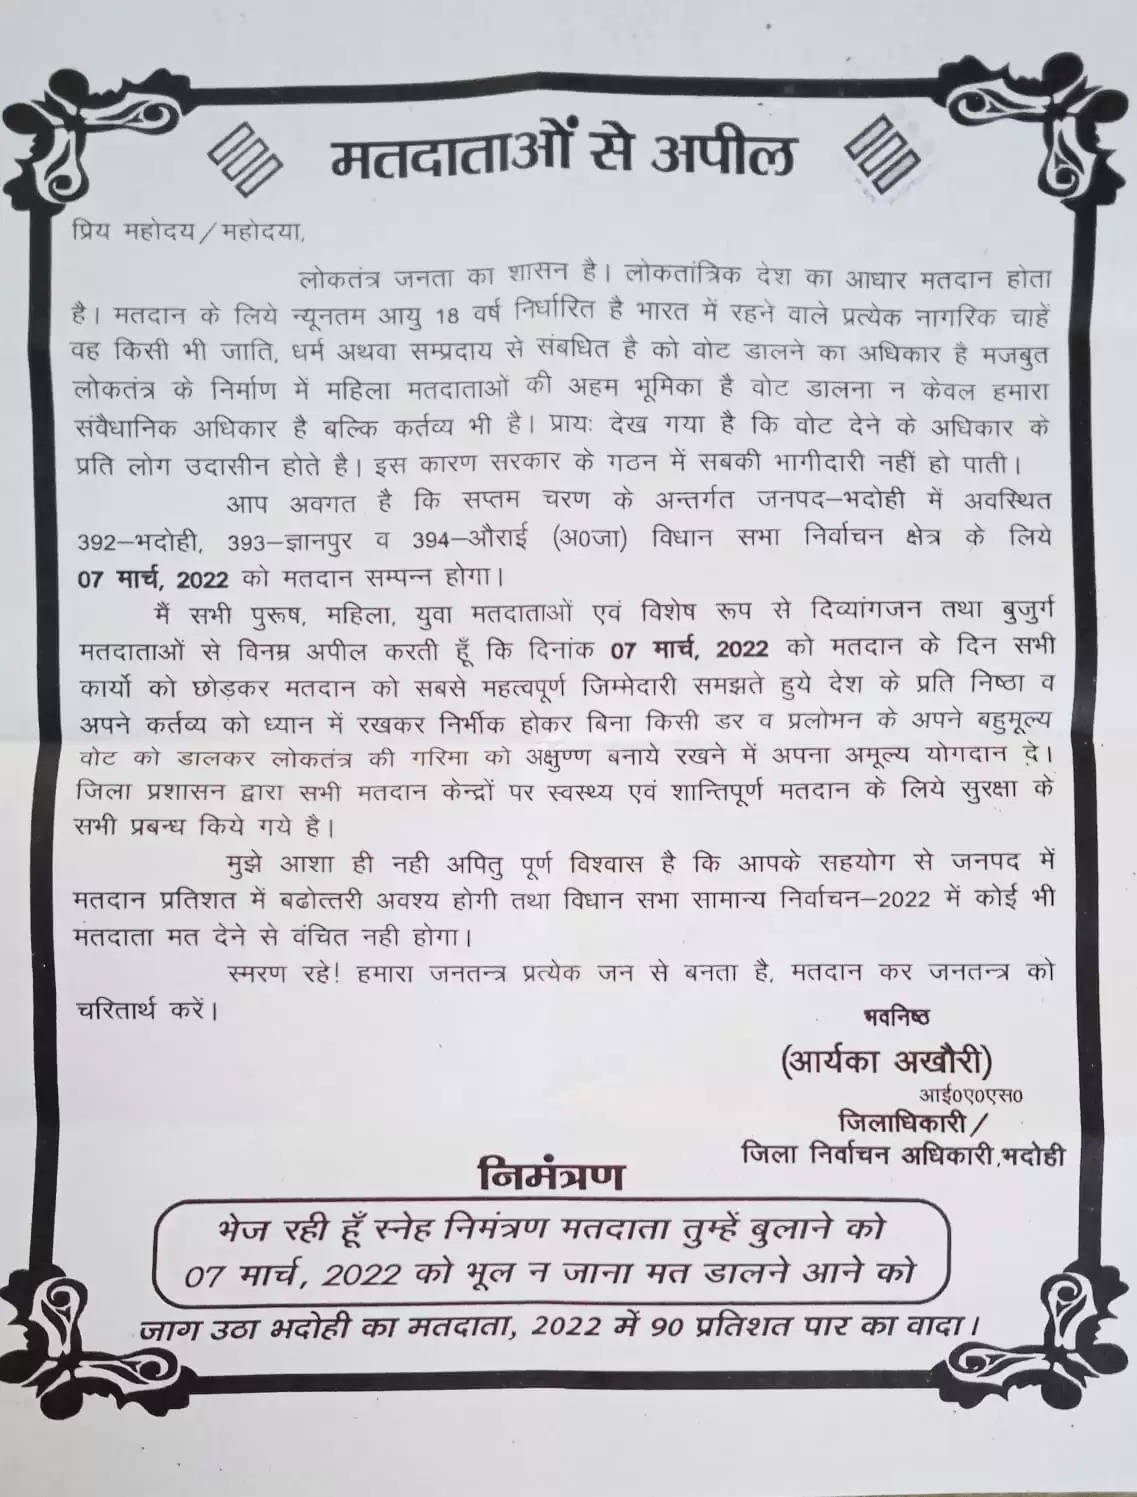 मतदाताओं से अपील
प्रिय महोदय/महोदया,
लोकतंत्र जनता का शासन है। लोकतांत्रिक देश का आधार मतदान होता
है। मतदान के लिये न्यूनतम आयु 18 वर्ष निर्धारित है भारत में रहने वाले प्रत्येक नागरिक चाहें
वह किसी भी जाति, धर्म अथवा सम्प्रदाय से संबधित है को वोट डालने का अधिकार है मजबुत
लोकतंत्र के निर्माण में महिला मतदाताओं की अहम भूमिका है वोट डालना न केवल हमारा
संवैधानिक अधिकार है बल्कि कर्तव्य भी है। प्रायः देख गया है कि वोट देने के अधिकार के
प्रति लोग उदासीन होते है। इस कारण सरकार के गठन में सबकी भागीदारी नहीं हो पाती।
आप अवगत है कि सप्तम चरण के अन्तर्गत जनपद–भदोही में अवस्थित
392–भदोही, 393–ज्ञानपुर व 394–औराई (अ0जा) विधान सभा निर्वाचन क्षेत्र के लिये
07 मार्च, 2022 को मतदान सम्पन्न होगा।
मैं सभी पुरूष, महिला, युवा मतदाताओं एवं विशेष रूप से दिव्यांगजन तथा बुजुर्ग
मतदाताओं से विनम्र अपील करती हूँ कि दिनांक 07 मार्च, 2022 को मतदान के दिन सभी
कार्यो को छोड़कर मतदान को सबसे महत्वपूर्ण जिम्मेदारी समझते हुये देश के प्रति निष्ठा व
अपने कर्तव्य को ध्यान में रखकर निर्भीक होकर बिना किसी डर व प्रलोभन के अपने बहुमूल्य
वोट को डालकर लोकतंत्र की गरिमा को अक्षुण्ण बनाये रखने में अपना अमूल्य योगदान दे।
जिला प्रशासन द्वारा सभी मतदान केन्द्रों पर स्वस्थ्य एवं शान्तिपूर्ण मतदान के लिये सुरक्षा के
सभी प्रबन्ध किये गये है।
मुझे आशा ही नही अपितु पूर्ण विश्वास है कि आपके सहयोग से जनपद में
मतदान प्रतिशत में बढोत्तरी अवश्य होगी तथा विधान सभा सामान्य निर्वाचन–2022 में कोई भी
मतदाता मत देने से वंचित नही होगा।
स्मरण रहे! हमारा जनतन्त्र प्रत्येक जन से बनता है, मतदान कर जनतन्त्र को
चरितार्थ करें।
भवनिष्ठ
(आर्यका अखौरी)
आई0ए0एस0
जिलाधिकारी/
जिला निर्वाचन अधिकारी,भदोही
निमंत्रण
भेज रही हूँ स्नेह निमंत्रण मतदाता तुम्हें बुलाने को
07 मार्च, 2022 को भूल न जाना मत डालने आने को
जाग उठा भदोही का मतदाता, 2022 में 90 प्रतिशत पार का वादा।